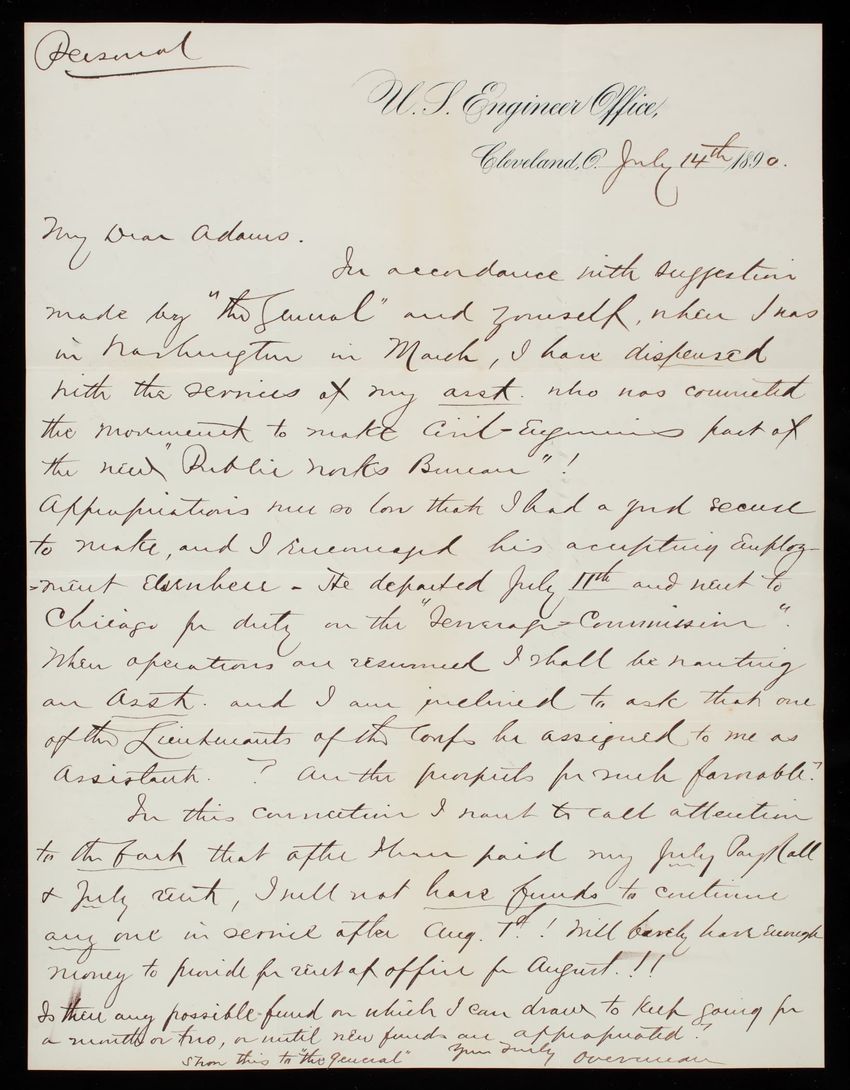 Personal
U. S. Engineer Office,
Cleveland, O. July 14th 1890.
My Dear Adams.
In accordance with suggestion
made by "the General" and yourself, when I was
in Washington in March, I have dispensed
with the services of my asst. who was connected
the movement to make Civil-Engineers part of
the new "Public Works Bureau"!
Appropriations were so low that I had a good excuse
to make, and I encouraged his accepting Employ-
=ment Elsewhere - He departed July 11th and went to
Chicago for duty on the "Sewerage-Commission".
When operations are resumed I shall be wanting
an Asst. and I am inclined to ask that one
of the Lieutenants of the Corps be assigned to me as
Assistant. ? Are the prospects for such favorable?
In this connection I want to call attention
to the fact that after I have paid my July Pay Roll
& July rent, I will not have funds to continue
any one in service after Aug. 1st! Will barely have enough
money to provide for rent of office for August.!!
Is there any possible fund on which I can draw to keep going for
a month or two, or until new funds are appropriated?
Show this to "the General" Yours Truly Overman